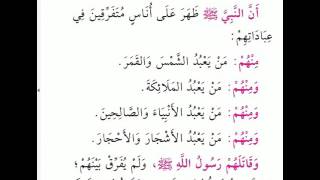 أَنَّ النَّبِيَّ ﷺ ظَهَرَ عَلَى أُنَاسٍ مُتَفَرِّقِينَ فِي
عِبَادَاتِهِمْ:
مِنْهُمْ: مَنْ يَعْبُدُ الشَّمْسَ وَالقَمَرَ.
وَمِنْهُمْ: مَنْ يَعْبُدُ المَلَائِكَةَ.
وَمِنْهُمْ: مَنْ يَعْبُدُ الأَنْبِيَاءَ وَالصَّالِحِينَ.
وَمِنْهُمْ: مَنْ يَعْبُدُ الأَشْجَارَ وَالأَحْجَارَ.
وَقَاتَلَهُمْ رَسُولُ اللَّهِ ﷺ، وَلَمْ يُفَرِّقْ بَيْنَهُمْ؛